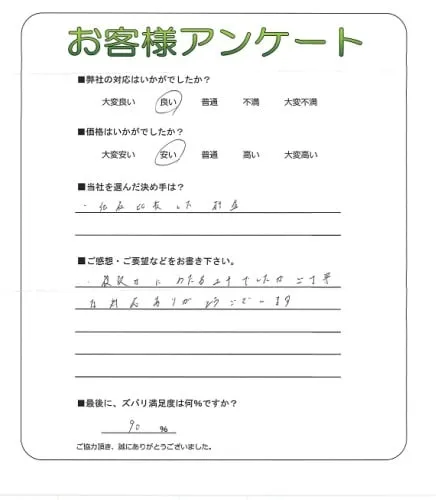 お客様アンケート
■弊社の対応はいかがでしたか？
大変良い 良い 普通 不満 大変不満
■価格はいかがでしたか？
大変安い 安い 普通 高い 大変高い
■当社を選んだ決め手は？
・他店比較した結果
■ご感想・ご要望などをお書き下さい。
・複数台にわたる工事でしたがご丁寧
な対応ありがとうございます
■最後に、ズバリ満足度は何%ですか？
90 %
ご協力頂き、誠にありがとうございました。